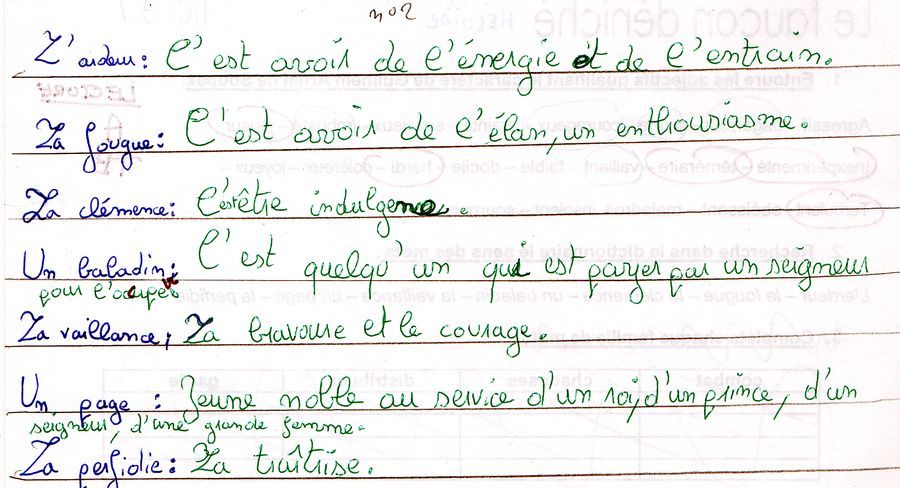 n°2
L'ardeur : C'est avoir de l'énergie et de l'entrain.
La fougue : C'est avoir de l'élan, un enthousiasme.
La clémence : C'est être indulgent.
Un baladin : C'est quelqu'un qui est payer par un seigneur
pour l'occuper
La vaillance : La bravoure et le courage.
Un page : Jeune noble au service d'un roi, d'un prince, d'un
seigneur, d'une grande femme.
La perfidie : La traîtrise.